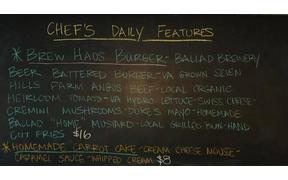 CHEF'S DAILY FEATURES
* BREW HAUS BURGER - BALLAD BREWERY
BEER BATTERED BURGER - VA GROWN SEVEN
HILLS FARM ANGUS BEEF - LOCAL ORGANIC
HEIRLOOM TOMATO - VA HYDRO LETTUCE - SWISS CHEESE -
CREMINI MUSHROOMS - DUKE'S MAYO - HOMEMADE
BALLAD "HOME" MUSTARD - LOCAL GRILLED BUN - HAND
CUT FRIES $16
* HOMEMADE CARROT CAKE - CREAM CHEESE MOUSE -
CARAMEL SAUCE - WHIPPED CREAM $8